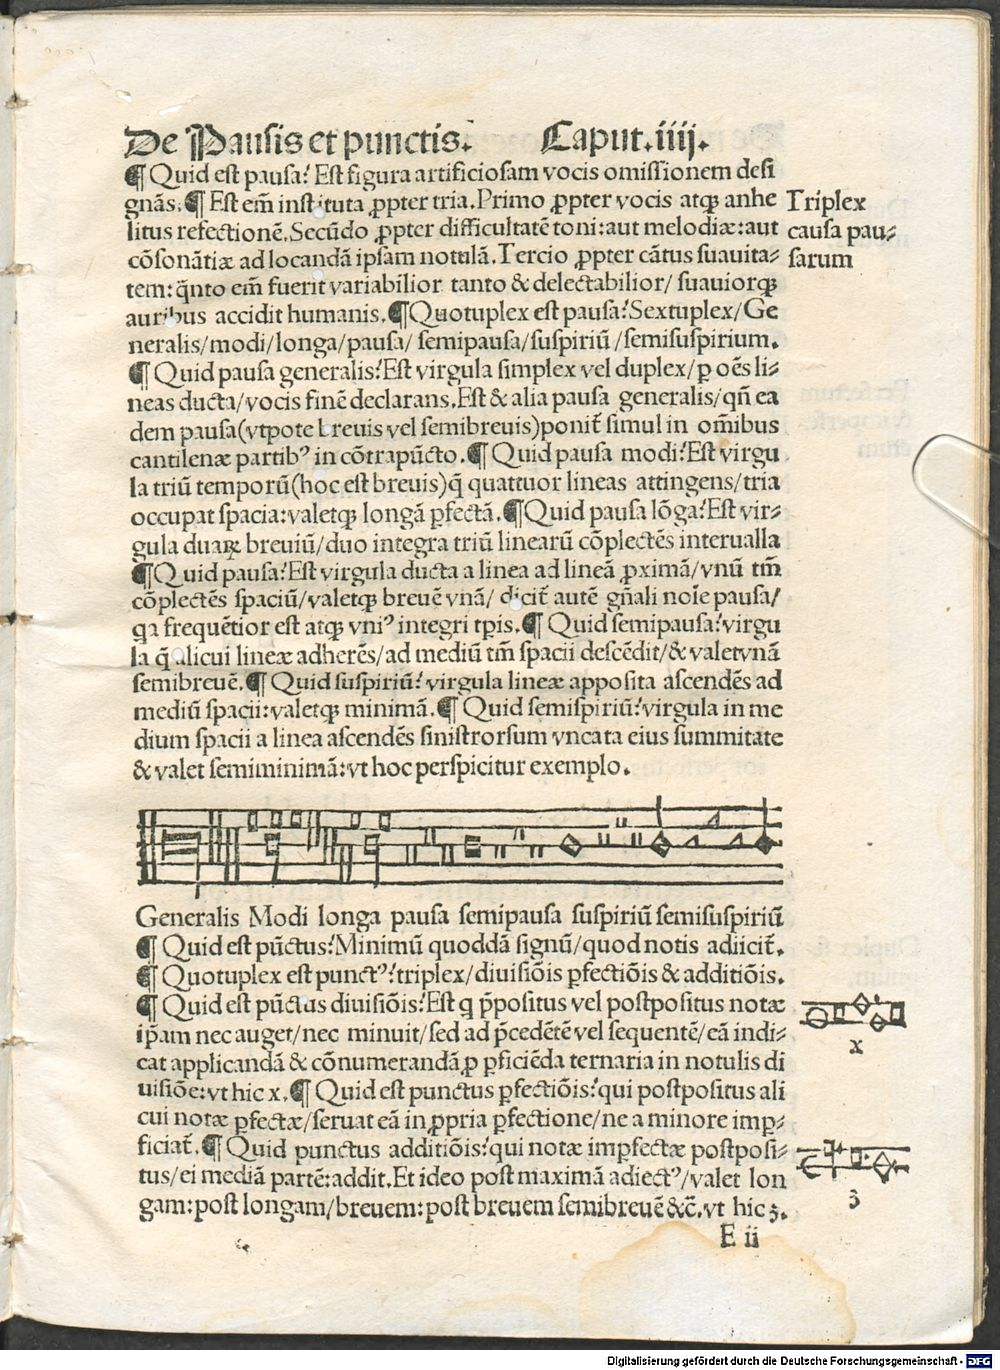 De Pausis et punctis. Caput. iiij.
¶ Quid est pausa? Est figura artificiosam vocis omissionem desi
gnãs. ¶ Est em̃ instituta ꝓpter tria. Primo ꝓpter vocis atqꝫ anhe
litus refectionẽ. Secũdo ꝓpter difficultatẽ toni: aut melodiæ: aut
cõsonãtiæ ad locandã ipsam notulã. Tercio ꝓpter cãtus suauita⸗
tem: q̃nto em̃ fuerit variabilior tanto & delectabilior/ suauiorqꝫ
auribus accidit humanis. ¶ Quotuplex est pausa? Sextuplex/ Ge
neralis/ modi/ longa/ pausa/ semipausa/ suspiriũ/ semisuspirium.
¶ Quid pausa generalis? Est virgula simplex vel duplex/ ꝑ oẽs li⸗
neas ducta/ vocis finẽ declarans. Est & alia pausa generalis/ qñ ea
dem pausa (vtpote breuis vel semibreuis) ponit̃ simul in om̃ibus
cantilenæ partibꝰ in cõtrapũcto. ¶ Quid pausa modi? Est virgu
la triũ temporũ (hoc est breuis) q̃ quattuor lineas attingens/ tria
occupat spacia: valetqꝫ longã ꝑfectã. ¶ Quid pausa lõga? Est vir⸗
gula duaꝝ breuiũ/ duo integra triũ linearũ cõplectẽs interualla
¶ Quid pausa? Est virgula ducta a linea ad lineã ꝓximã/ vnũ tm̃
cõplectẽs spaciũ/ valetqꝫ breuẽ vnã/ dicit̃ autẽ gñali noĩe pausa/
qa frequẽtior est atqꝫ vniꝰ integri tp̃is. ¶ Quid semipausa? virgu
la q̃ alicui lineæ adherẽs/ ad mediũ tm̃ spacii descẽdit/ & valet vnã
semibreuẽ. ¶ Quid suspiriũ? virgula lineæ apposita ascendẽs ad
mediũ spacii: valetqꝫ minimã. ¶ Quid semispiriũ? virgula in me
dium spacii a linea ascendẽs sinistrorsum vncata eius summitate
& valet semiminimã: vt hoc perspicitur exemplo.
Triplex
causa pau⸗
sarum
Generalis Modi longa pausa semipausa suspiriũ semisuspiriũ
¶ Quid est pũctus? Minimũ quoddã signũ/ quod notis adiicit̃.
¶ Quotuplex est punctꝰ? triplex/ diuisiõis ꝑfectiõis & additiõis.
¶ Quid est pũctus diuisiõis? Est q p̃positus vel postpositus notæ
ip̃am nec auget/ nec minuit/ sed ad p̃cedẽtẽ vel sequentẽ/ eã indi⸗
cat applicandã & cõnumerandã ꝓ ꝑficiẽda ternaria in notulis di
uisiõe: vt hic x. ¶ Quid est punctus ꝑfectiõis? qui postpositus ali
cui notæ ꝑfectæ/ seruat eã in ꝓpria ꝑfectione/ ne a minore imꝑ⸗
ficiat̃. ¶ Quid punctus additiõis? qui notæ imꝑfectæ postposi⸗
tus/ ei mediã partẽ: addit. Et ideo post maximã adiectꝰ/ valet lon
gam: post longam/ breuem: post breuem semibreuẽ &c̃. vt hic ʒ.
x
ʒ
E ii
Digitalisierung gefördert durch die Deutsche Forschungsgemeinschaft - DFG